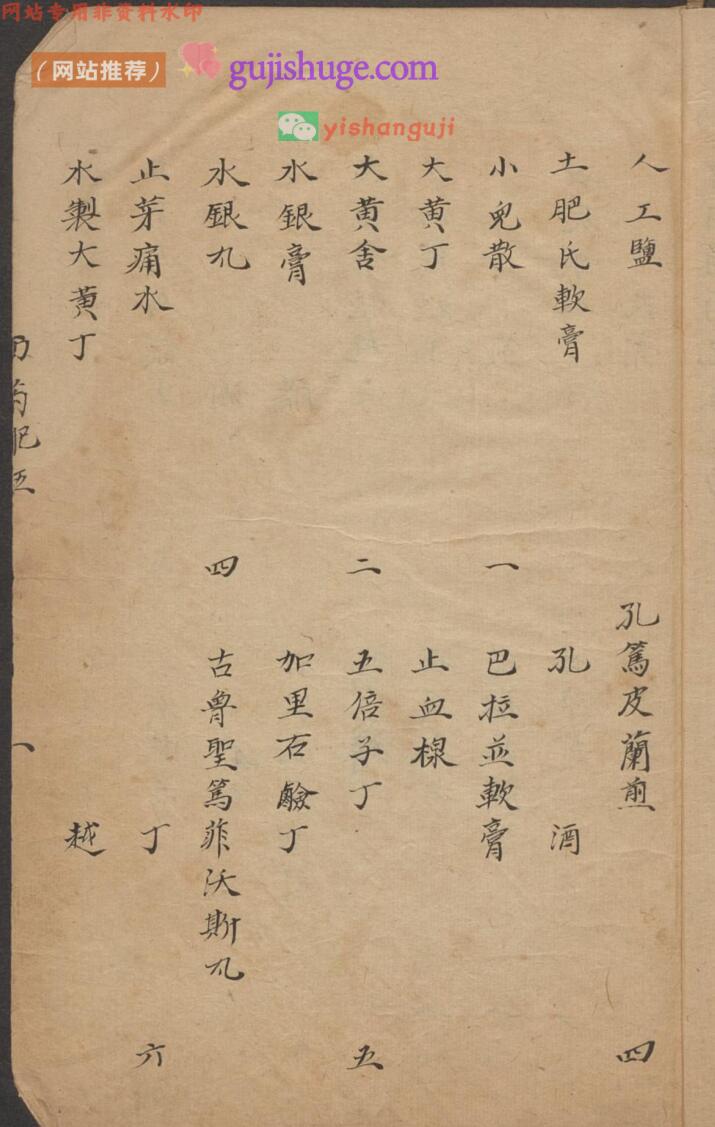 网站专用非资料水印
（网站推荐）
gujishuge.com
yishanguji
人工鹽
土肥氏軟膏
小兒散 一
大黄丁
大黄舍 二
水銀膏
水銀丸 四
止芽痛水
水製大黄丁
孔篤皮蘭煎 四
孔 酒
巴拉並軟膏
止血棉
五倍子丁 五
加里石鹼丁
古魯聖篤菲沃斯丸
丁 六
越